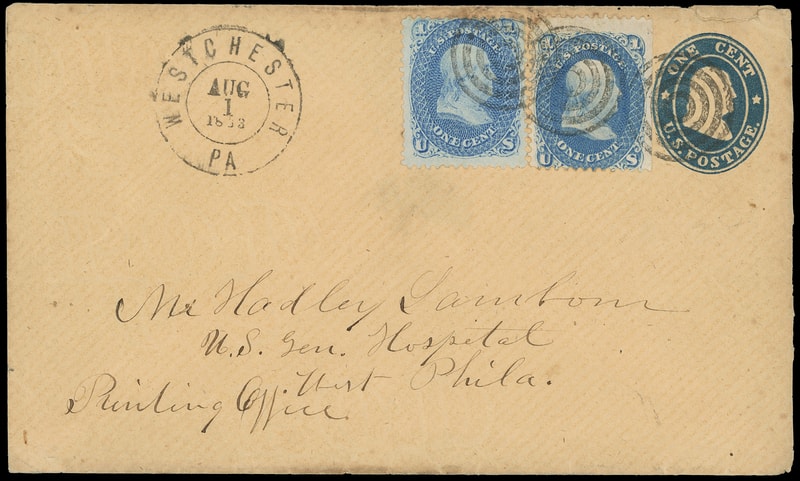 WESTCHESTER
AUG
1
1863
PA
1 1
U.S. POSTAGE.
ONE CENT
U S
1 1
U.S. POSTAGE.
ONE CENT
U S
ONE CENT
U.S. POSTAGE.
Mr Hadley Lamborn
U.S. Gen. Hospital
West Phila.
Printing Office